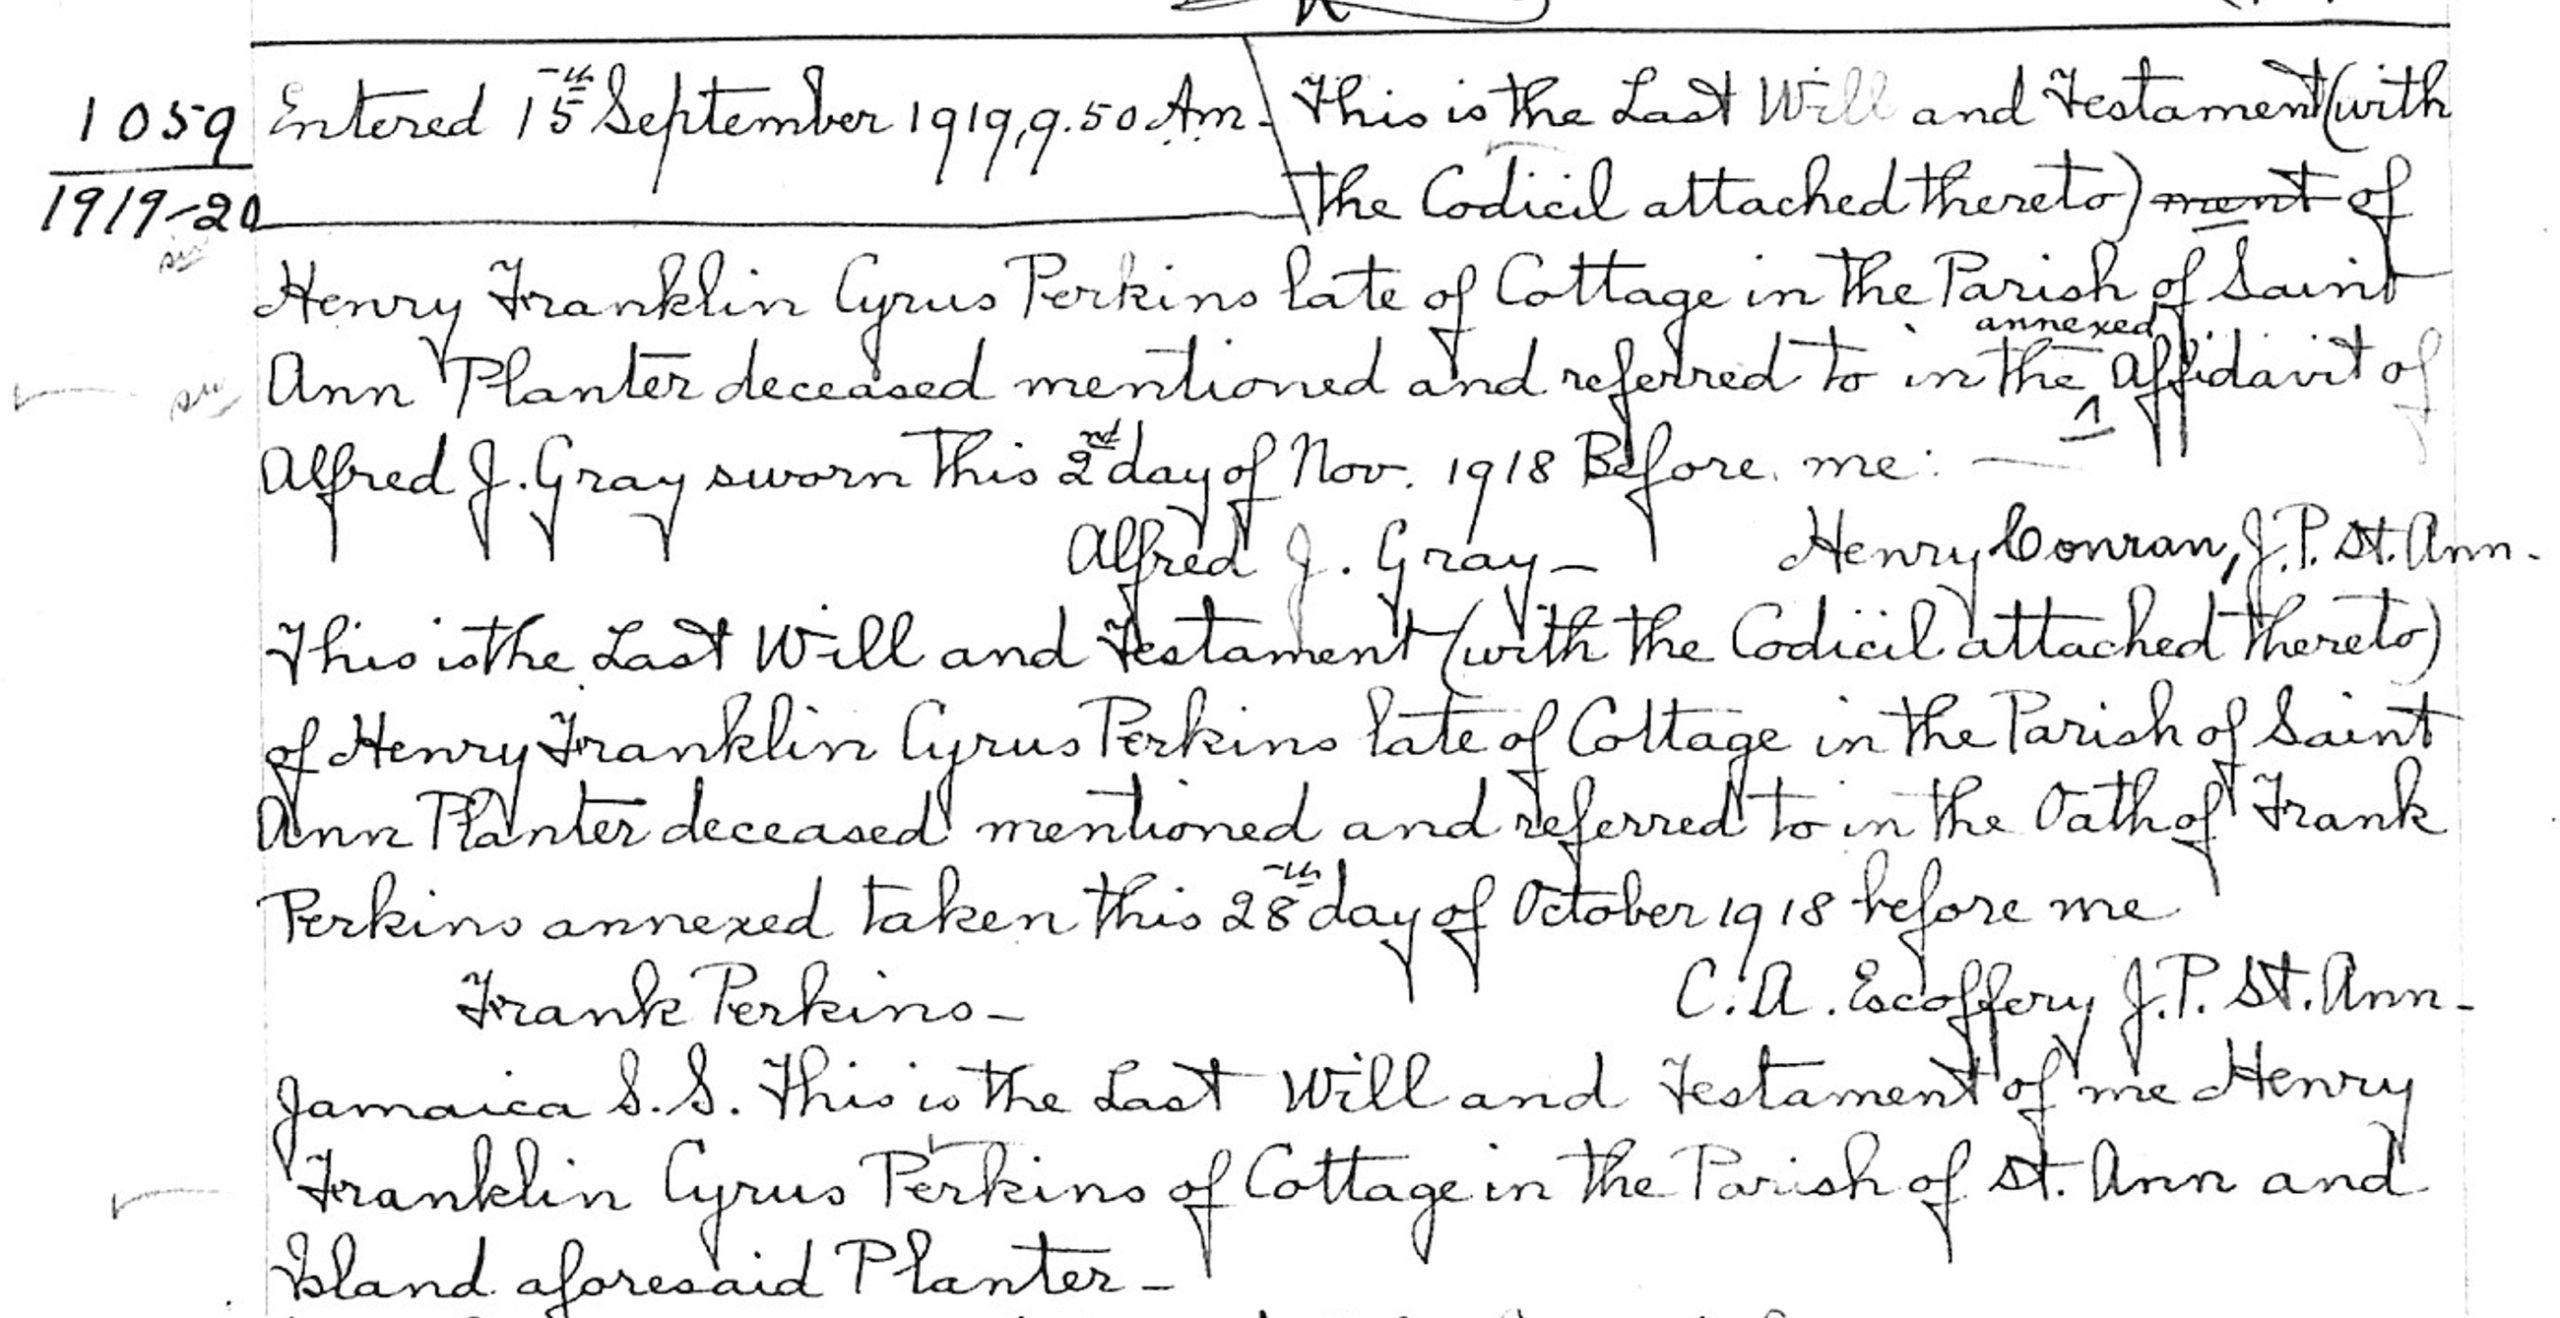 1059
1919-20
Entered 15th September 1919, 9.50 Am.
This is the Last Will and Testament (with
the Codicil attached thereto) ment of
Henry Franklin Cyrus Perkins late of Cottage in the Parish of Saint
annexed
Ann Planter deceased mentioned and referred to in the Affidavit of
Alfred J. Gray sworn this 2nd day of Nov. 1918 Before me: —
Alfred J. Gray — Henry Conran, J.P. St. Ann.
This is the Last Will and Testament (with the Codicil attached thereto)
of Henry Franklin Cyrus Perkins late of Cottage in the Parish of Saint
Ann Planter deceased mentioned and referred to in the Oath of Frank
Perkins annexed taken this 28th day of October 1918 before me
Frank Perkins — C. A. Escoffery J.P. St. Ann -
Jamaica S.S. This is the Last Will and Testament of me Henry
Franklin Cyrus Perkins of Cottage in the Parish of St. Ann and
Island aforesaid Planter -